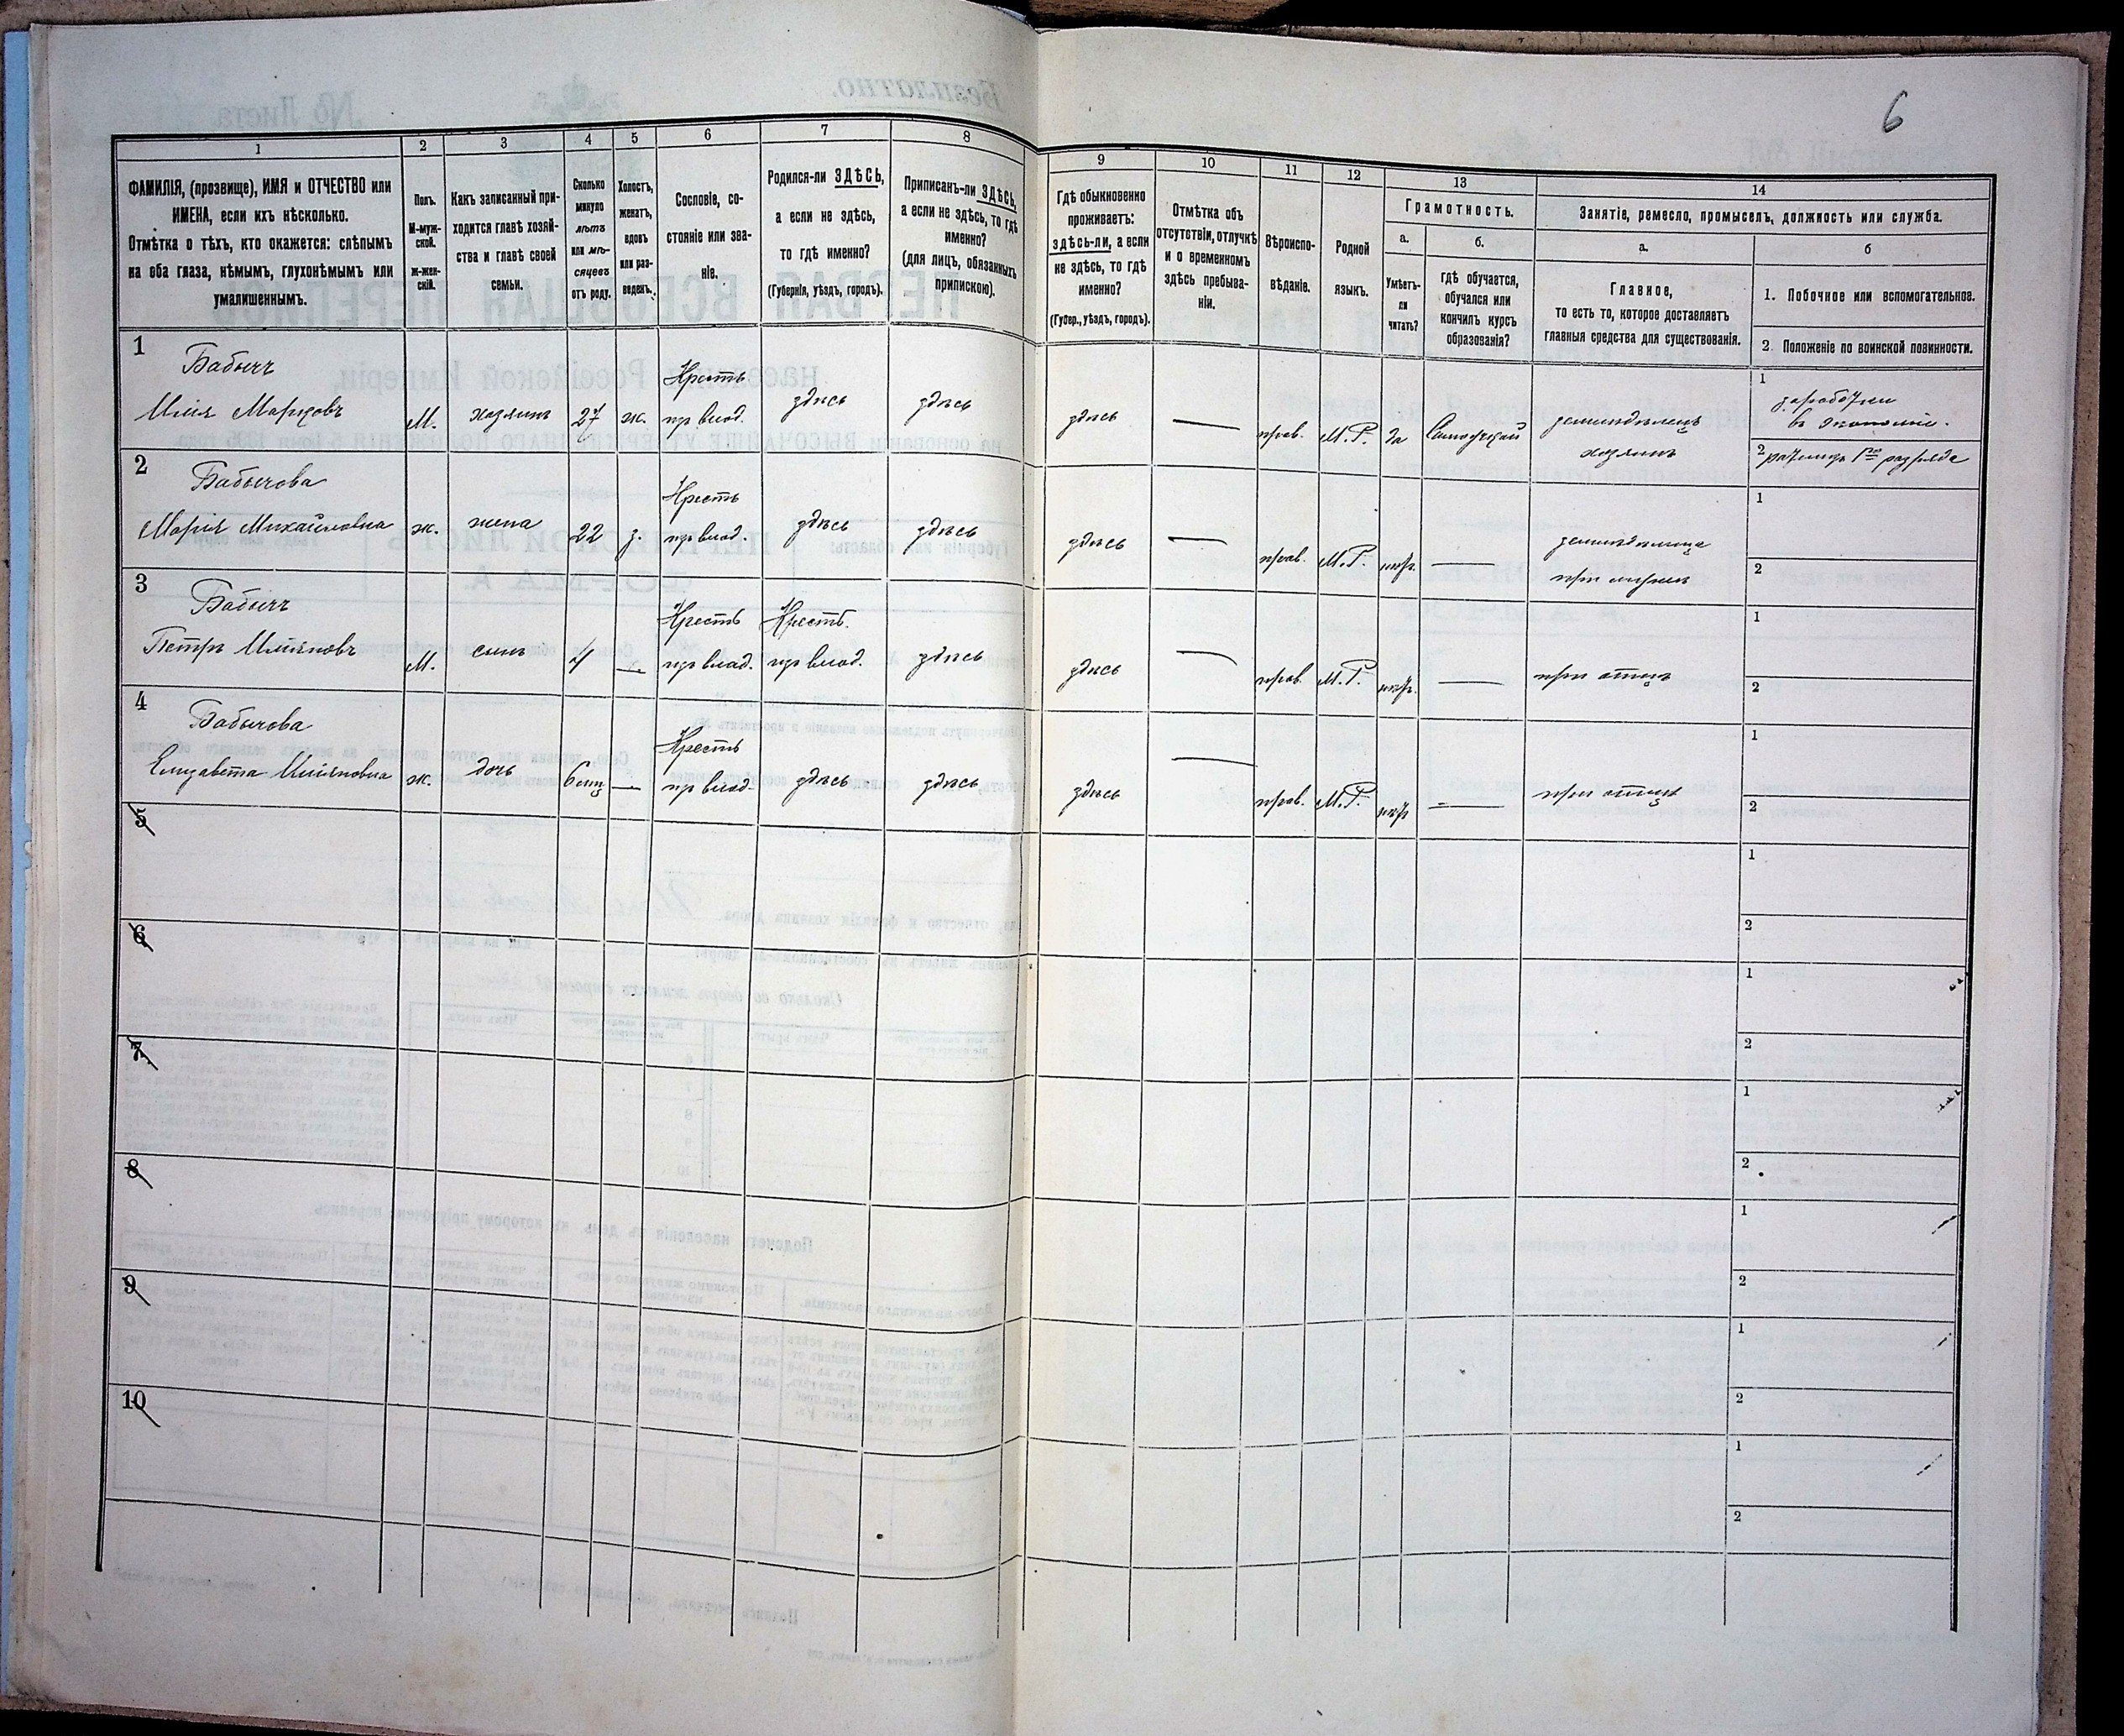 6
1
2
3
4
5
6
7
8
9
10
11
12
13
14
ФАМИЛІЯ, (прозвище), ИМЯ и ОТЧЕСТВО или
ИМЕНА, если ихъ нѣсколько.
Отмѣтка о тѣхъ, кто окажется: слѣпымъ
на оба глаза, нѣмымъ, глухонѣмымъ или
умалишеннымъ.
Полъ.
М-муж-
ской.
ж-жен-
скій.
Какъ записанный при-
ходится главѣ хозяй-
ства и главѣ своей
семьи.
Сколько
минуло
лѣтъ
или мѣ-
сяцевъ
отъ роду.
Холостъ,
женатъ,
вдовъ
или раз-
веденъ.
Сословіе, со-
стояніе или зва-
ніе.
Родился-ли ЗДѢСЬ,
а если не здѣсь,
то гдѣ именно?
(Губернія, уѣздъ, городъ).
Приписанъ-ли ЗДѢСЬ,
а если не здѣсь, то гдѣ
именно?
(для лицъ, обязанныхъ
припискою).
Гдѣ обыкновенно
проживаетъ:
здѣсь-ли, а если
не здѣсь, то гдѣ
именно?
(Губер., уѣздъ, городъ).
Отмѣтка объ
отсутствіи, отлучкѣ
и о временномъ
здѣсь пребыва-
ніи.
Вѣроиспо-
вѣданіе.
Родной
языкъ.
Грамотность.
а.
Умѣетъ-
ли
читать?
б.
гдѣ обучается,
обучался или
кончилъ курсъ
образованія?
Занятіе, ремесло, промыселъ, должность или служба.
а.
Главное,
то есть то, которое доставляетъ
главныя средства для существованія.
б
1. Побочное или вспомогательное.
2. Положеніе по воинской повинности.
1
Бабычъ
Илія Марковъ
М.
хозяинъ
27
ж.
Крестъ
пр влад.
здѣсь
здѣсь
здѣсь
—
прав.
М.Р.
да
земледѣлецъ
хозяинъ
1
заработки
въ экономіи.
2
ратникъ 1го разряда
2
Бабычова
Марія Михайловна
ж.
жена
22
з.
Крестъ
пр влад.
здѣсь
здѣсь
здѣсь
—
прав.
М.Р.
—
при мужѣ
1
2
3
Бабычъ
Петръ Иліяновъ
М.
сынъ
4
—
Крестъ
пр влад.
Крестъ.
пр влад.
здѣсь
здѣсь
—
прав.
М.Р.
—
при отцѣ
1
2
4
Бабычова
Елизавета Иліяновна
ж.
дочь
6 мц
—
Крестъ
пр влад.
здѣсь
здѣсь
здѣсь
—
прав.
М.Р.
—
при отцѣ
1
2
5
1
2
6
1
2
7
1
2
8
1
2
9
1
2
10
1
2